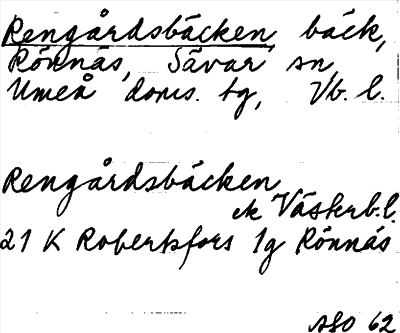 Rengårdsbäcken, bäck,
Rönnäs, Sävar sn,
Umeå doms. tg, Vb. l.
Rengårdsbäcken
ek Västerb. l.
21 K Robertsfors 1g Rönnäs
ASO 62